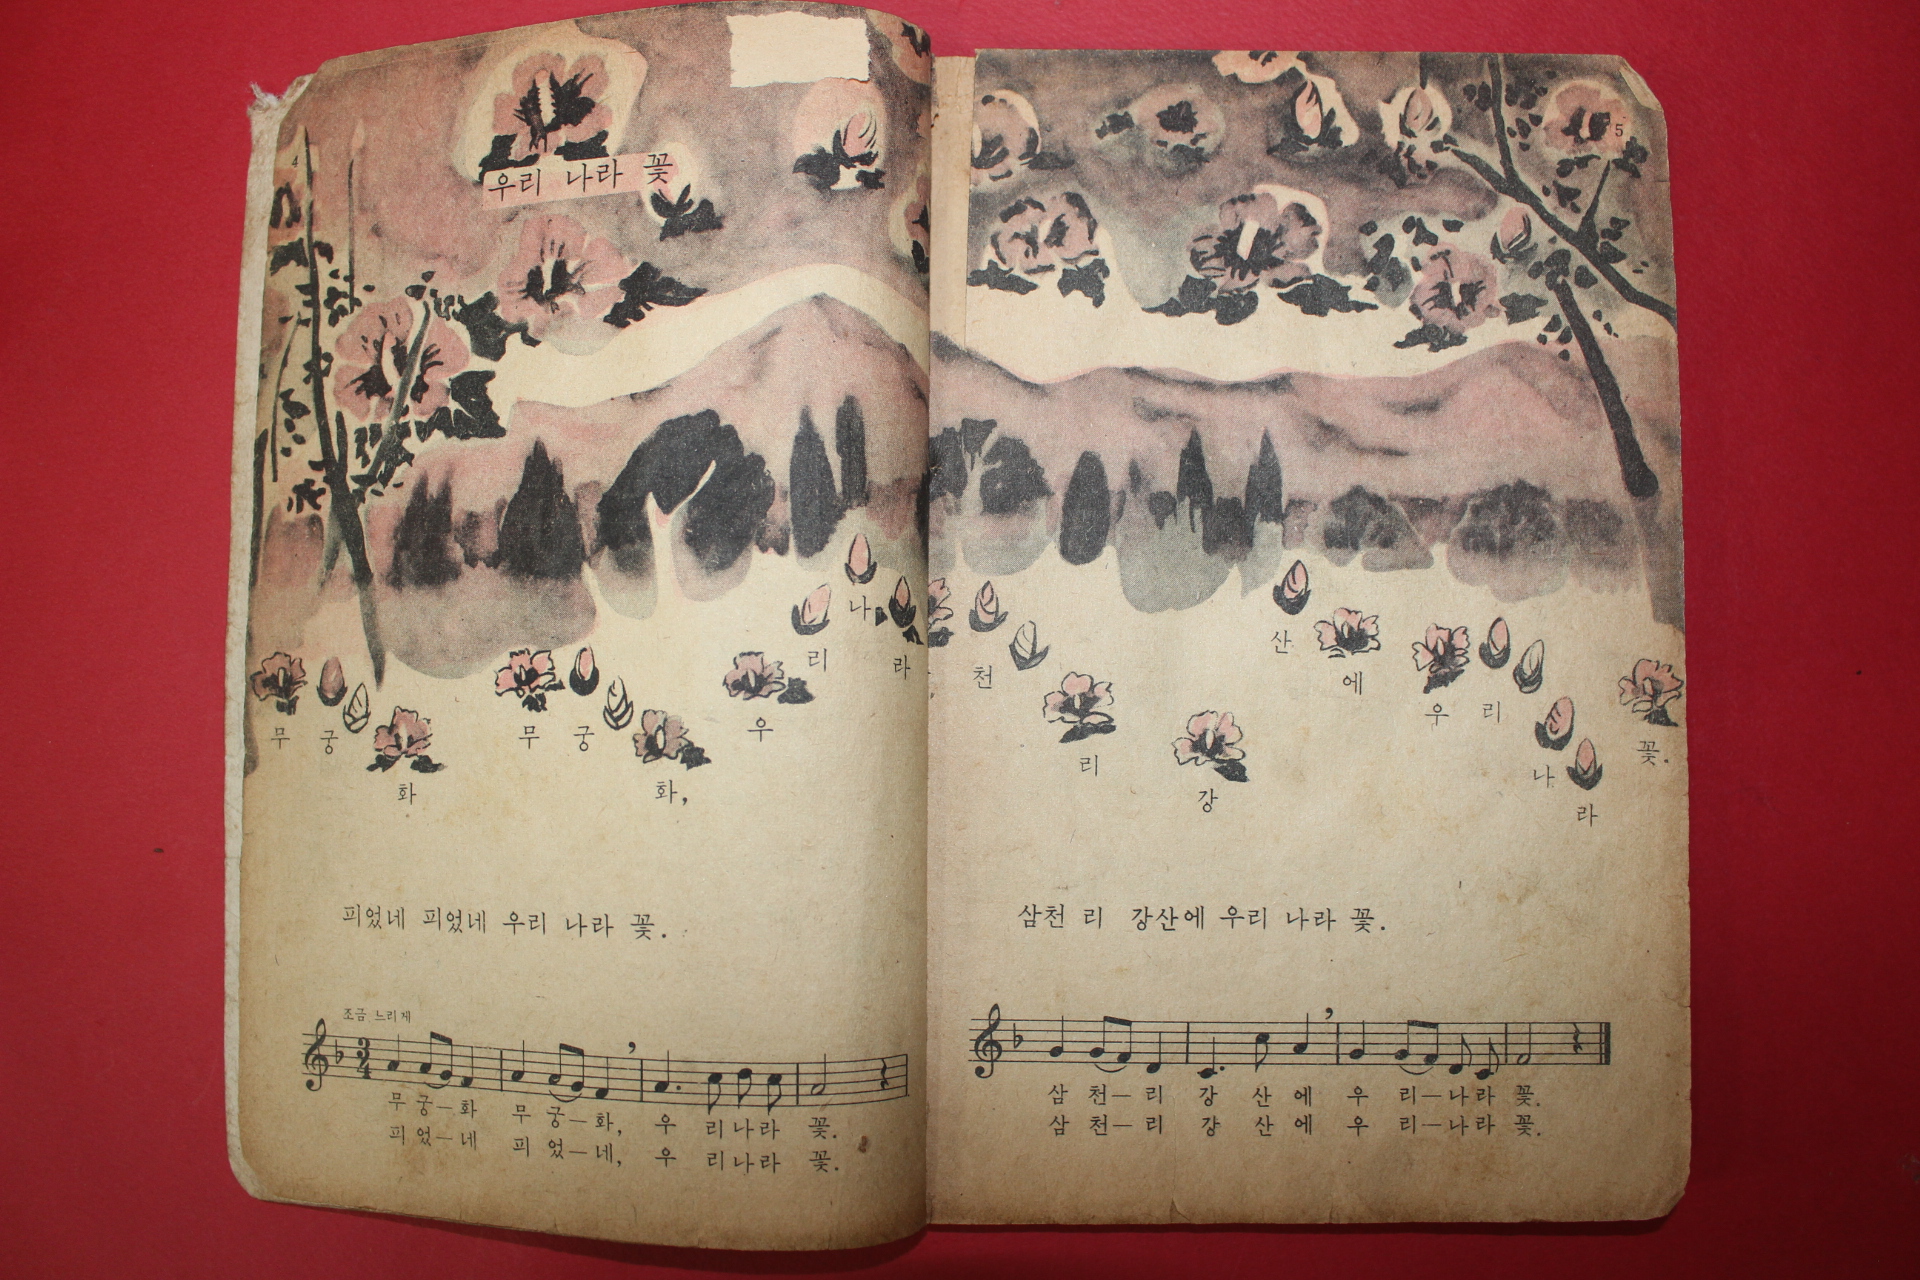 4
우리 나라 꽃
무 궁 화 무 궁 화, 우 리 나 라
피었네 피었네 우리 나라 꽃.
조금 느리게
3
4
무 궁― 화 무 궁― 화, 우 리 나 라 꽃.
피 었― 네 피 었― 네, 우 리 나 라 꽃.
5
천 리 강 산 에 우 리 나 라 꽃.
삼천 리 강산에 우리 나라 꽃.
삼 천― 리 강 산 에 우 리― 나 라 꽃.
삼 천― 리 강 산 에 우 리― 나 라 꽃.